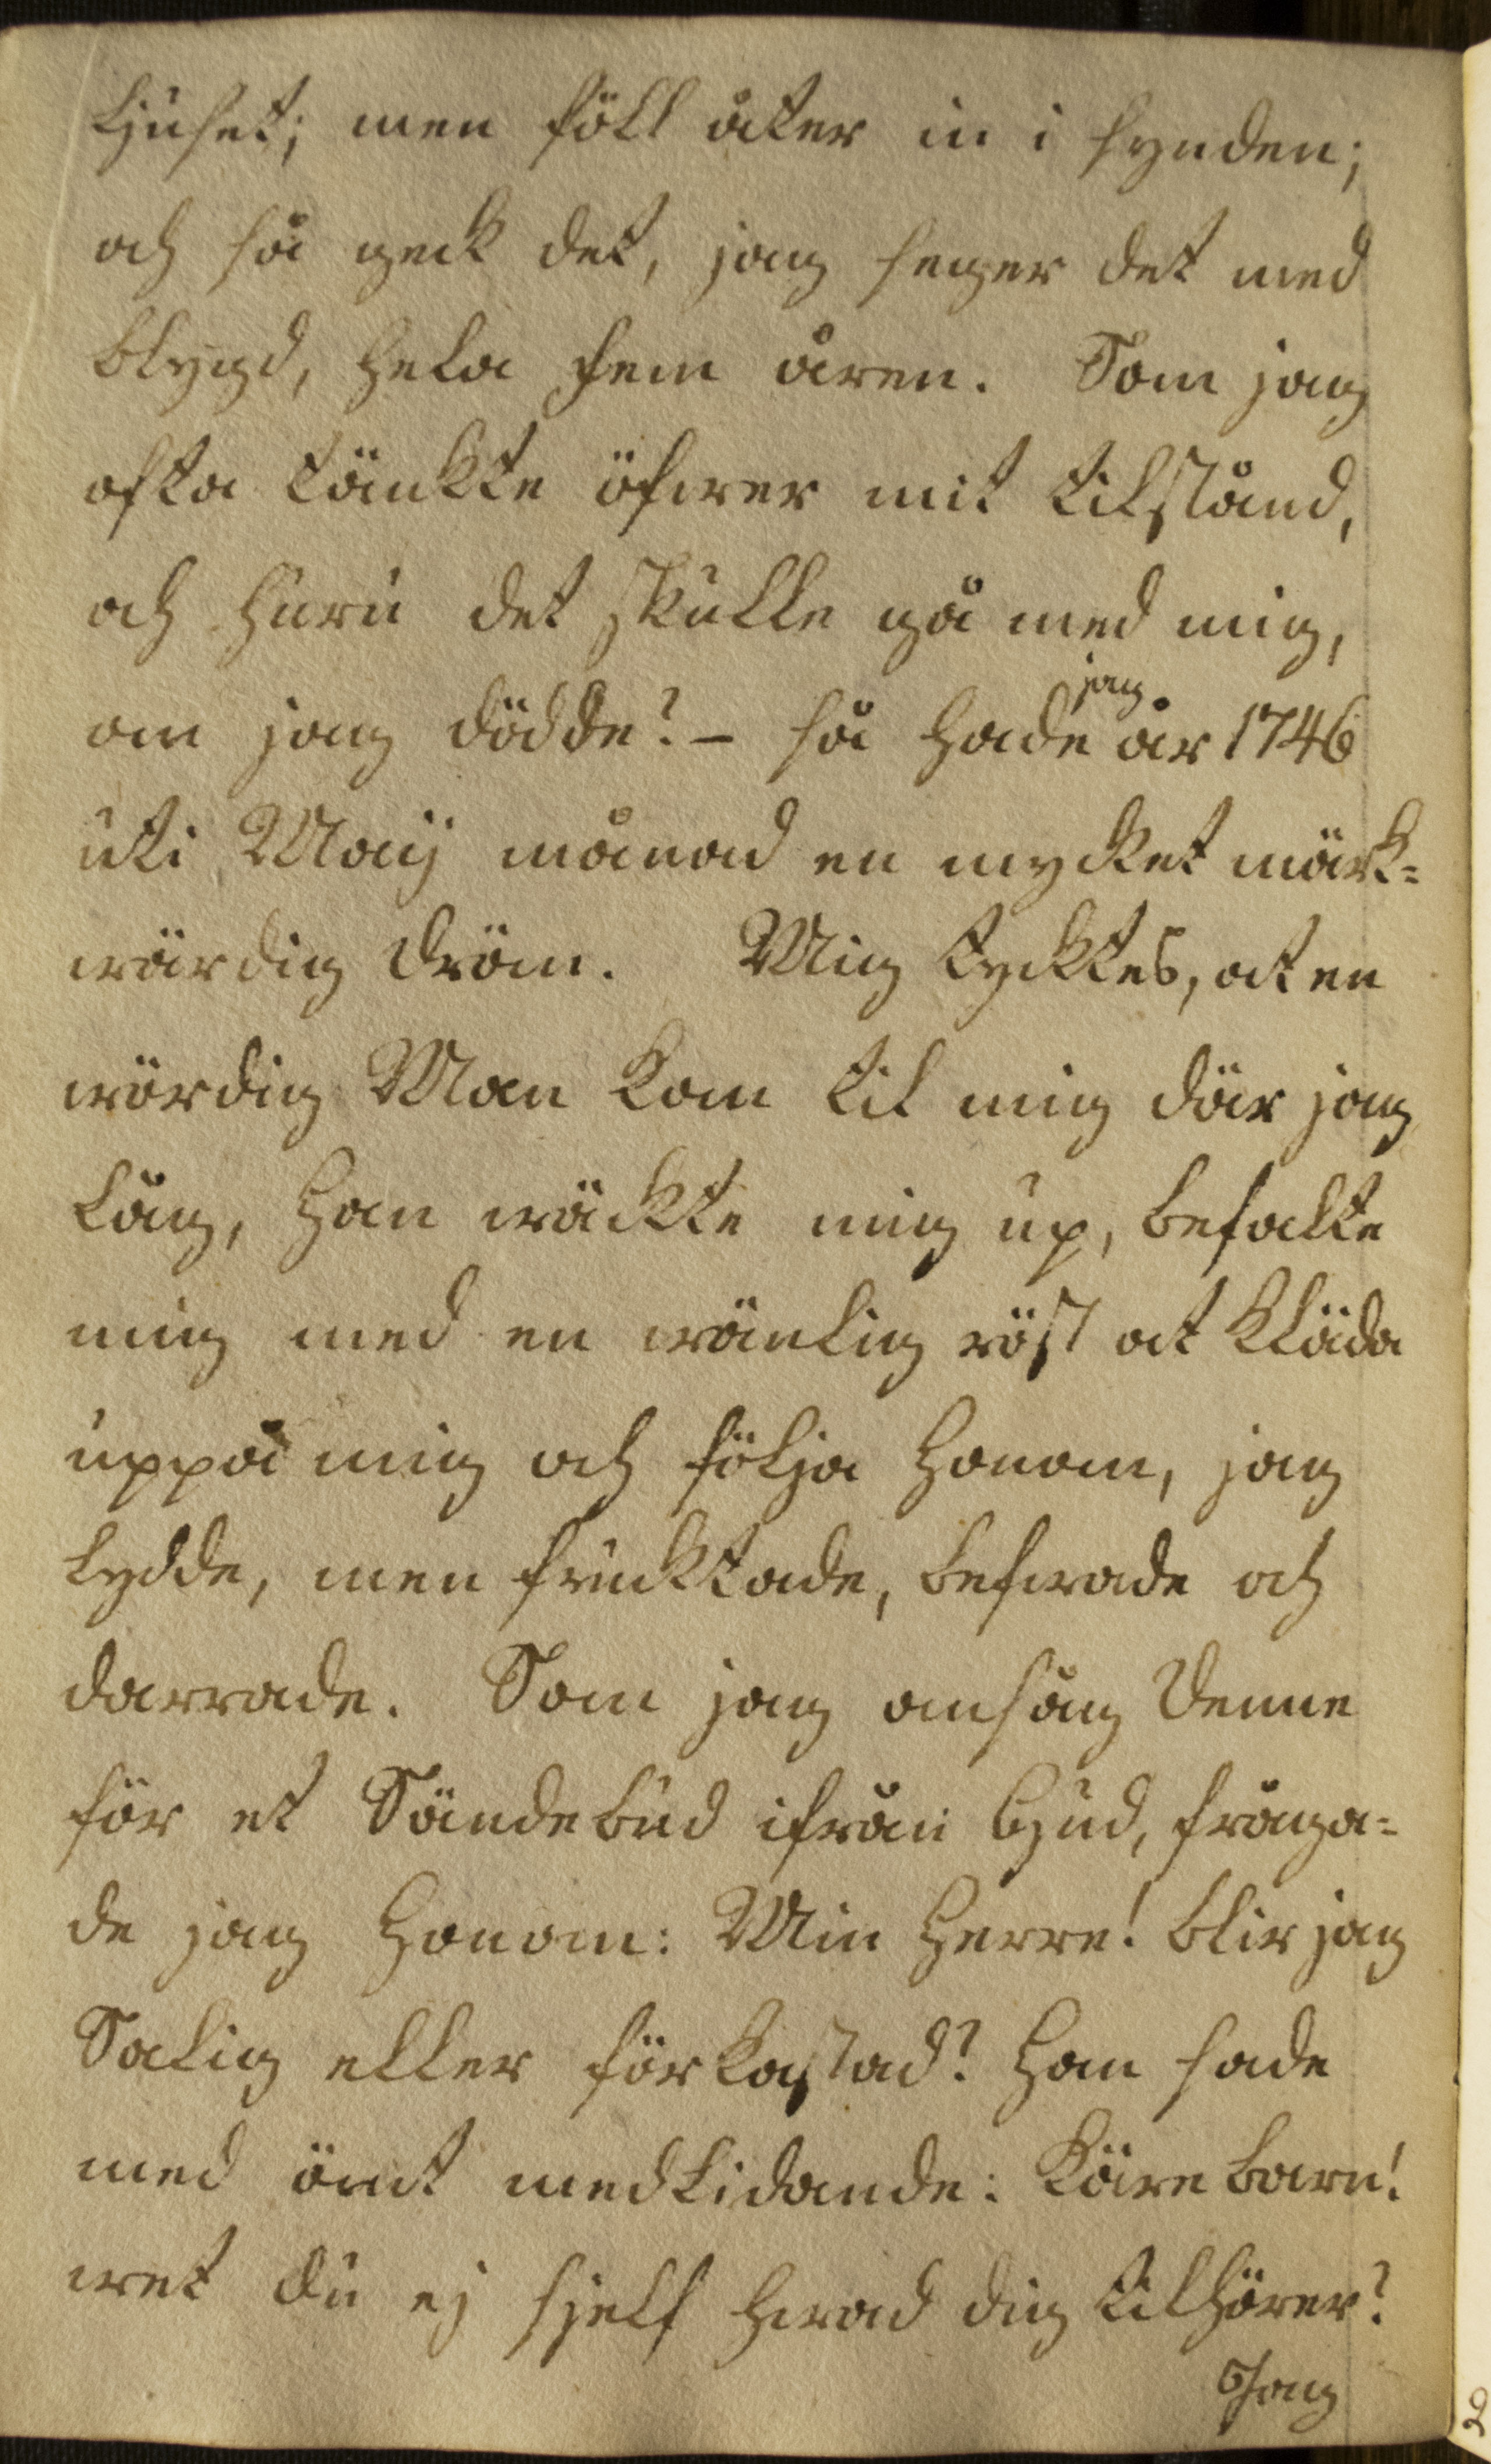 ljuset; men föll åter in i synden;
och så geck det, jag seger det med
blygd, hela fem åren. Som jag
ofta tänkte öfwer mit tilstånd,
och huru det skulle gå med mig,
om jag dödde? – så hade jag år 1746
uti Maij månad en mycket märk-
wärdig dröm. Mig tycktes, at en
wördig Man kom til mig där jag
låg, han wäckte mig up, befalte
mig med en wänlig röst at kläda
uppå mig och följa honom, jag
lydde, men fruktade, befwade och
darrade. Som jag ansåg Denne
för et Sändebud ifrån Gud, fråga-
de jag honom: Min Herre! blir jag
Salig eller förkastad? Han sade
med ömt medlidande: Käre barn!
wet du ej sjelf hwad dig tilhörer?
Jag
2